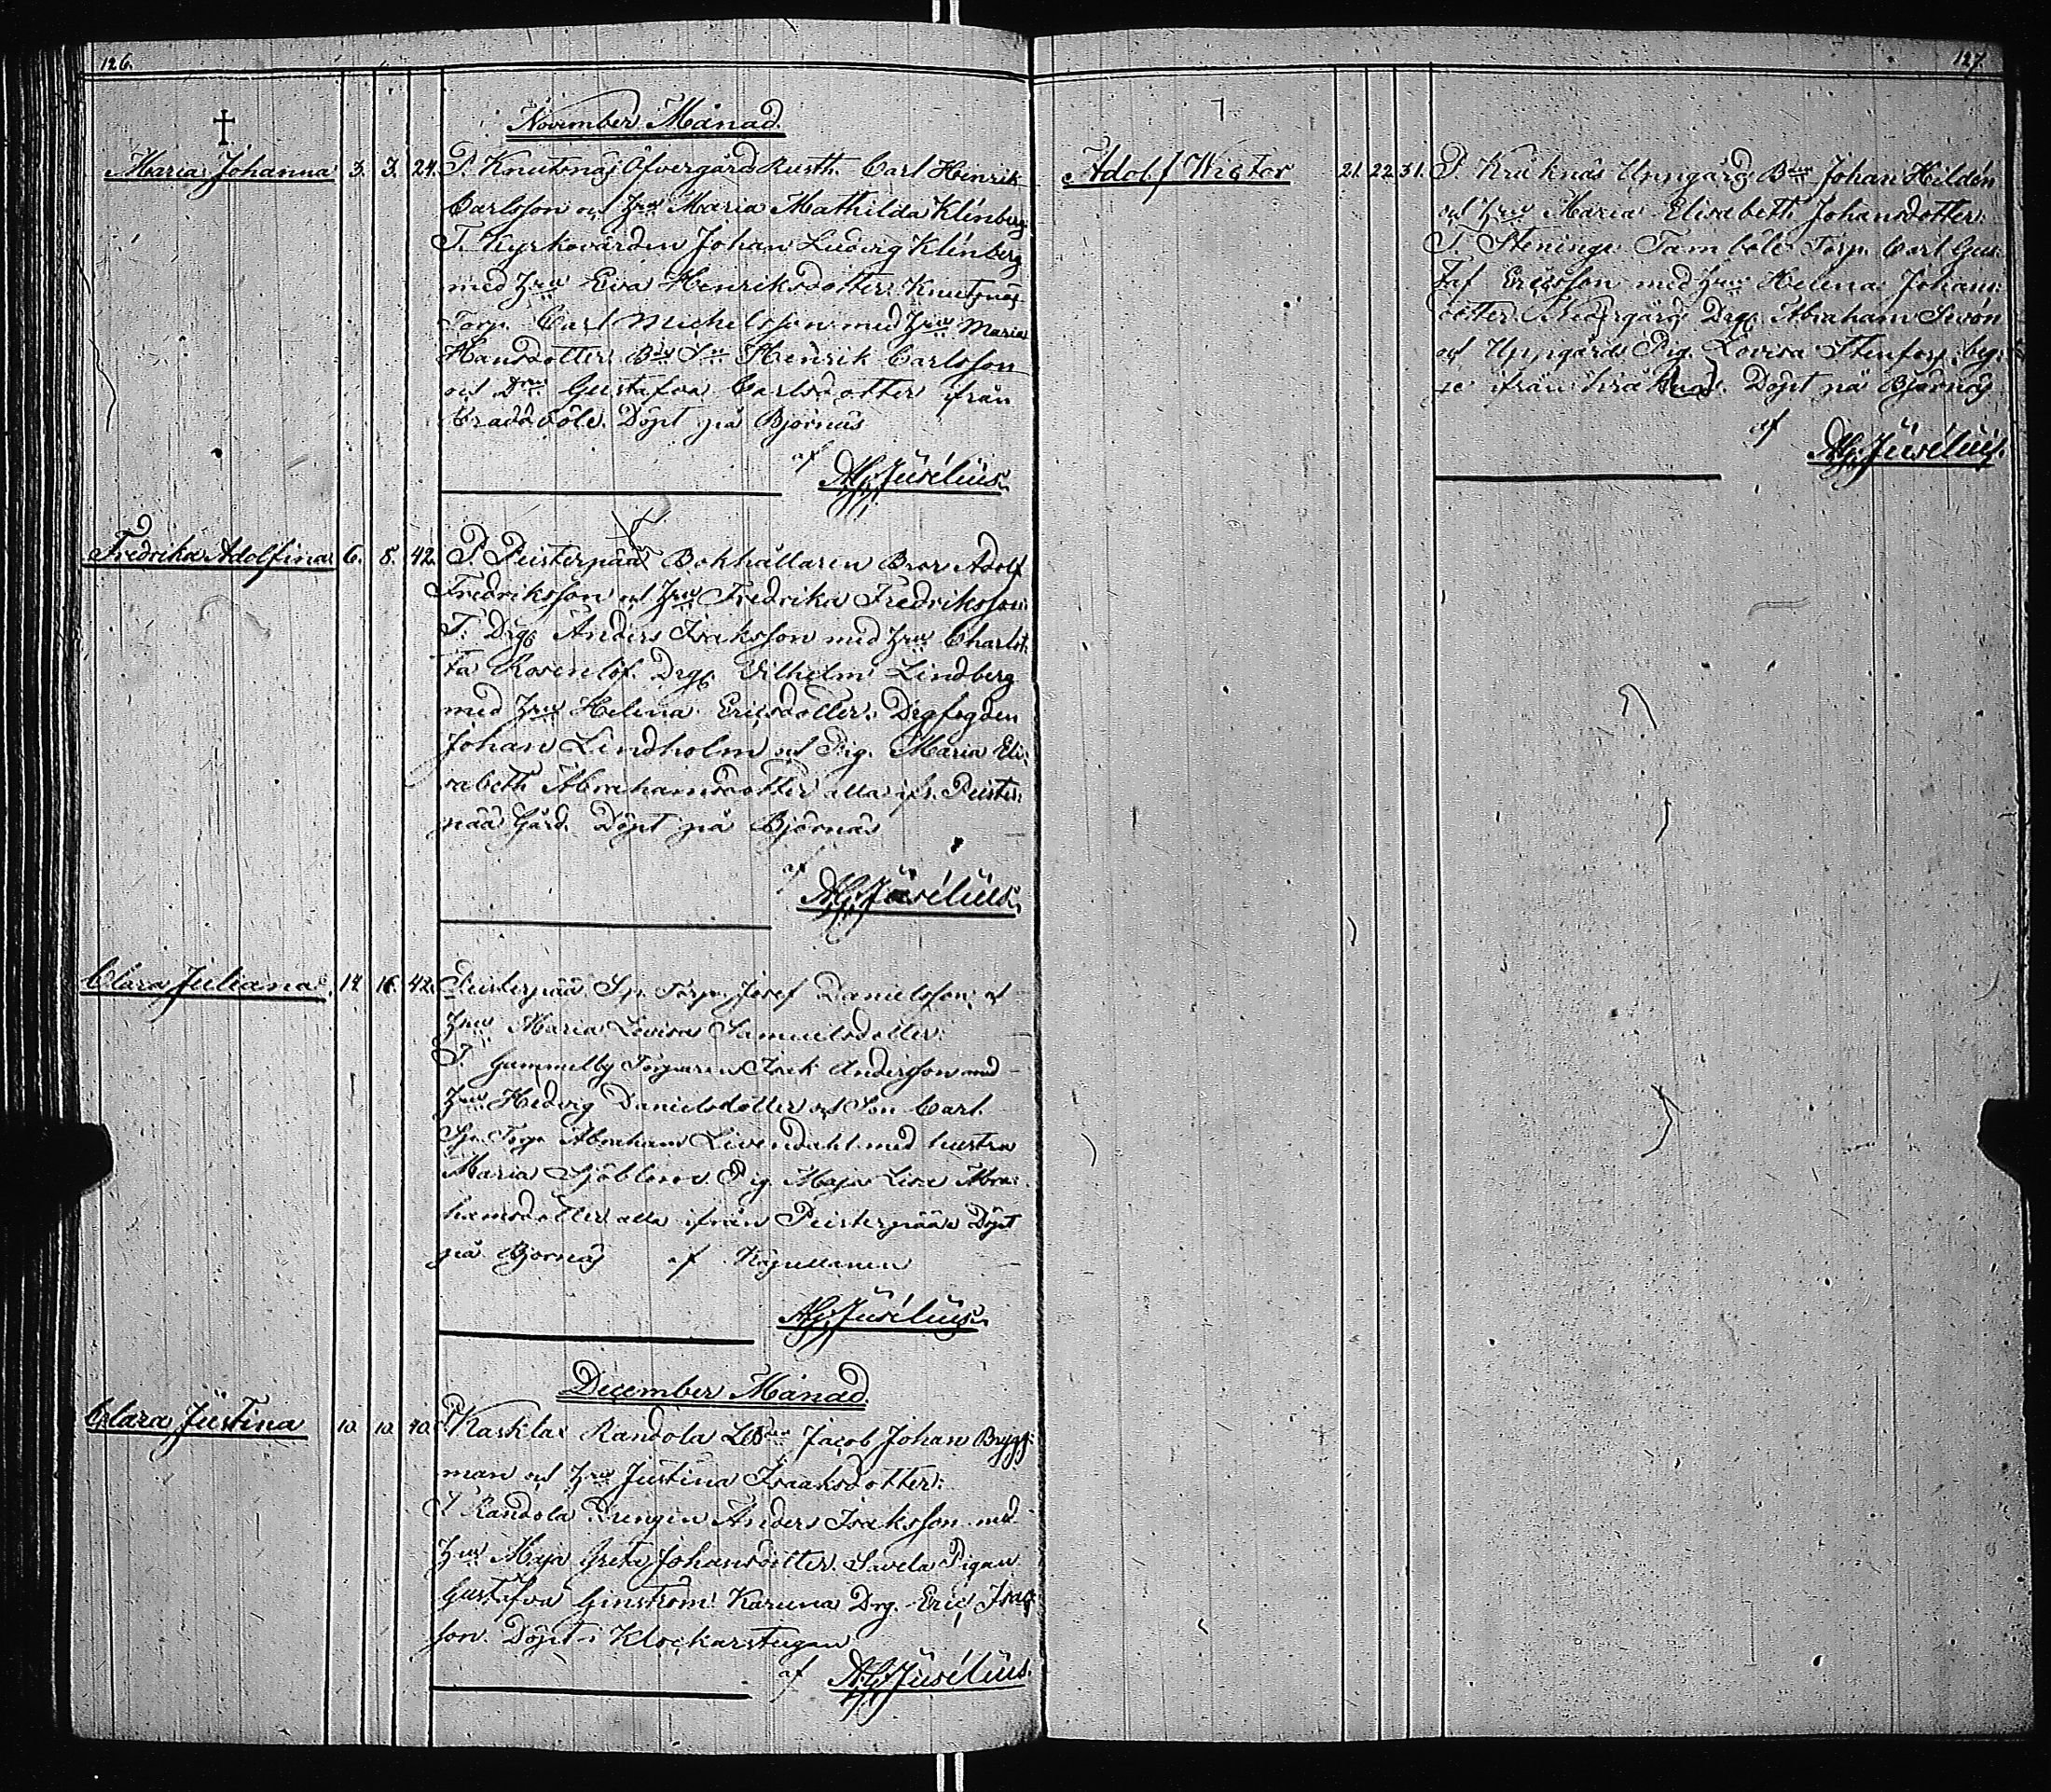 126.
November Månad.
Maria Johanna 3. 3. 24. P. Knutsnäs Öfvergård Rusth. Carl Henrik
Carlsson och Hru Maria Mathilda Klinberg.
T. Kyrkovärden Johan Ludvig Klinberg
med Hru Eva Henriksdotter. Knutsnäs
Torp. Carl Michelsson med Hru Maria
Hansdotter. Henrik Carlsson
och Gustafva Carlsdotter ifrån
Döpt på Björnäs
af
A. G. Jusélius.
Fredrika Adolfina. 6. 8. 42. P. Peisterpää Bokhållaren Bror Adolf
Fredriksson och Hru Fredrika Fredriksson.
T. Drg. Anders Isaksson med Hru Charlot-
ta Rosenlöf. Drg. Vilhelm Lindberg
med Hru Helena Ericsdotter. Drgfogden
Johan Lindholm och Pig. Maria Eli-
sabeth Abrahamsdotter alla ifr. Peister-
pää Gård. Döpt på Björnäs
af
A. G. Jusélius.
Clara Juliana. 14. 16. 42. Peisterpää Sp. Torp. Josef Danielsson och
Hru Maria Lovisa Samuelsdotter.
T. Gammelby Torparen Isak Andersson med
Hru Hedvig Danielsdotter och Son Carl.
Sp. Torp. Abraham Livendahl med hustru
Maria Sjöblom. Pig. Maja Lisa Abra-
hamsdotter alla ifrån Peisterpää Döpt
på Björnäs af Kapellanen
A. G. Jusélius.
December Månad.
Clara Justina 10. 10. 40. P. Karklax Randola Jacob Johan Brygg-
man och Hru Justina Isaaksdotter.
T. Randola Drengen Anders Isaksson med
Hru Maja Greta Johansdotter. Savela Pigan
Gustafva Ginström. Karuna Drg. Eric Isaks-
son. Döpt i Klockarstugan
af A. G. Jusélius.
127.
Adolf Wictor 21. 22. 31. P. Kräknäs Uppgård Johan Hildén
och Hru Maria Elisabeth Johansdotter.
T. Steninge Tamböle Torp. Carl Gus-
taf Ericsson med Hru Helena Johans-
dotter. Nedergård Drg. Abraham Sivón
och Uppgårds Pig. Lovisa Stentorp. beg-
ge ifrån Kräknäs. Döpt på Björnäs
af
A. G. Jusélius.